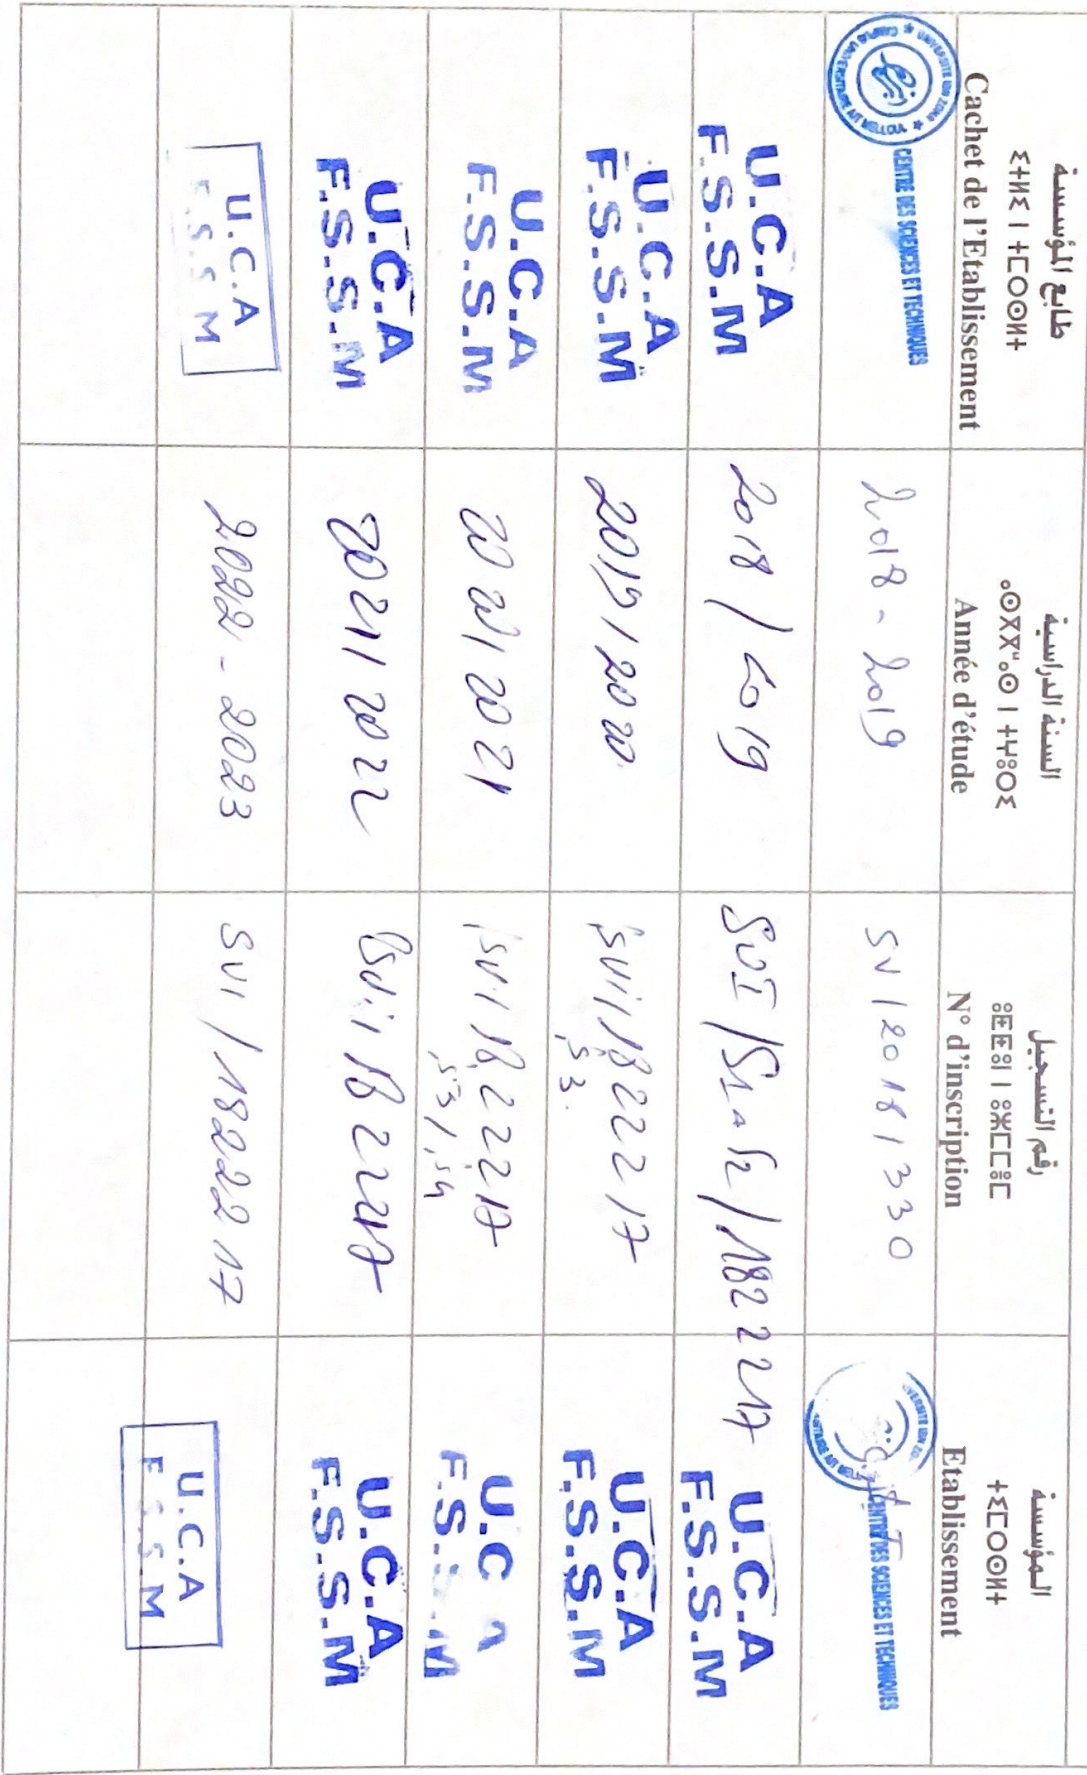 طابع المؤسسة
ⵉⵜⵍⵉ ⵏ ⵜⵎⵔⵙⵍⵜ
Cachet de l'Etablissement
السنة الدراسية
ⴰⵙⴳⴳⵯⴰⵙ ⵏ ⵜⵖⵓⵔⵉ
Année d'étude
رقم التسجيل
ⵓⵟⵟⵓⵏ ⵏ ⵓⵣⵎⵎⴻⵎ
N° d'inscription
المؤسسة
ⵜⵉⵎⵔⵙⵍⵜ
Etablissement
UNIVERSITE IBN ZOHR
CAMPUS UNIVERSITAIRE AIT MELLOUL
CENTRE DES SCIENCES ET TECHNIQUES
2018 - 2019
SV / 2018 / 330
CENTRE DES SCIENCES ET TECHNIQUES
U.C.A
F.S.S.M
2018 / 2019
SVI / S1 / 1822217
U.C.A
F.S.S.M
U.C.A
F.S.S.M
2019 / 2020
SVI / 1822217
S3
U.C.A
F.S.S.M
U.C.A
F.S.S.M
2020 / 2021
SVI / 1822217
S3 / S4
U.C.A
F.S.S.M
U.C.A
F.S.S.M
2021 / 2022
SVI / 1822217
U.C.A
F.S.S.M
U.C.A
F.S.S.M
2022 - 2023
SVI / 1822217
U.C.A
F.S.S.M